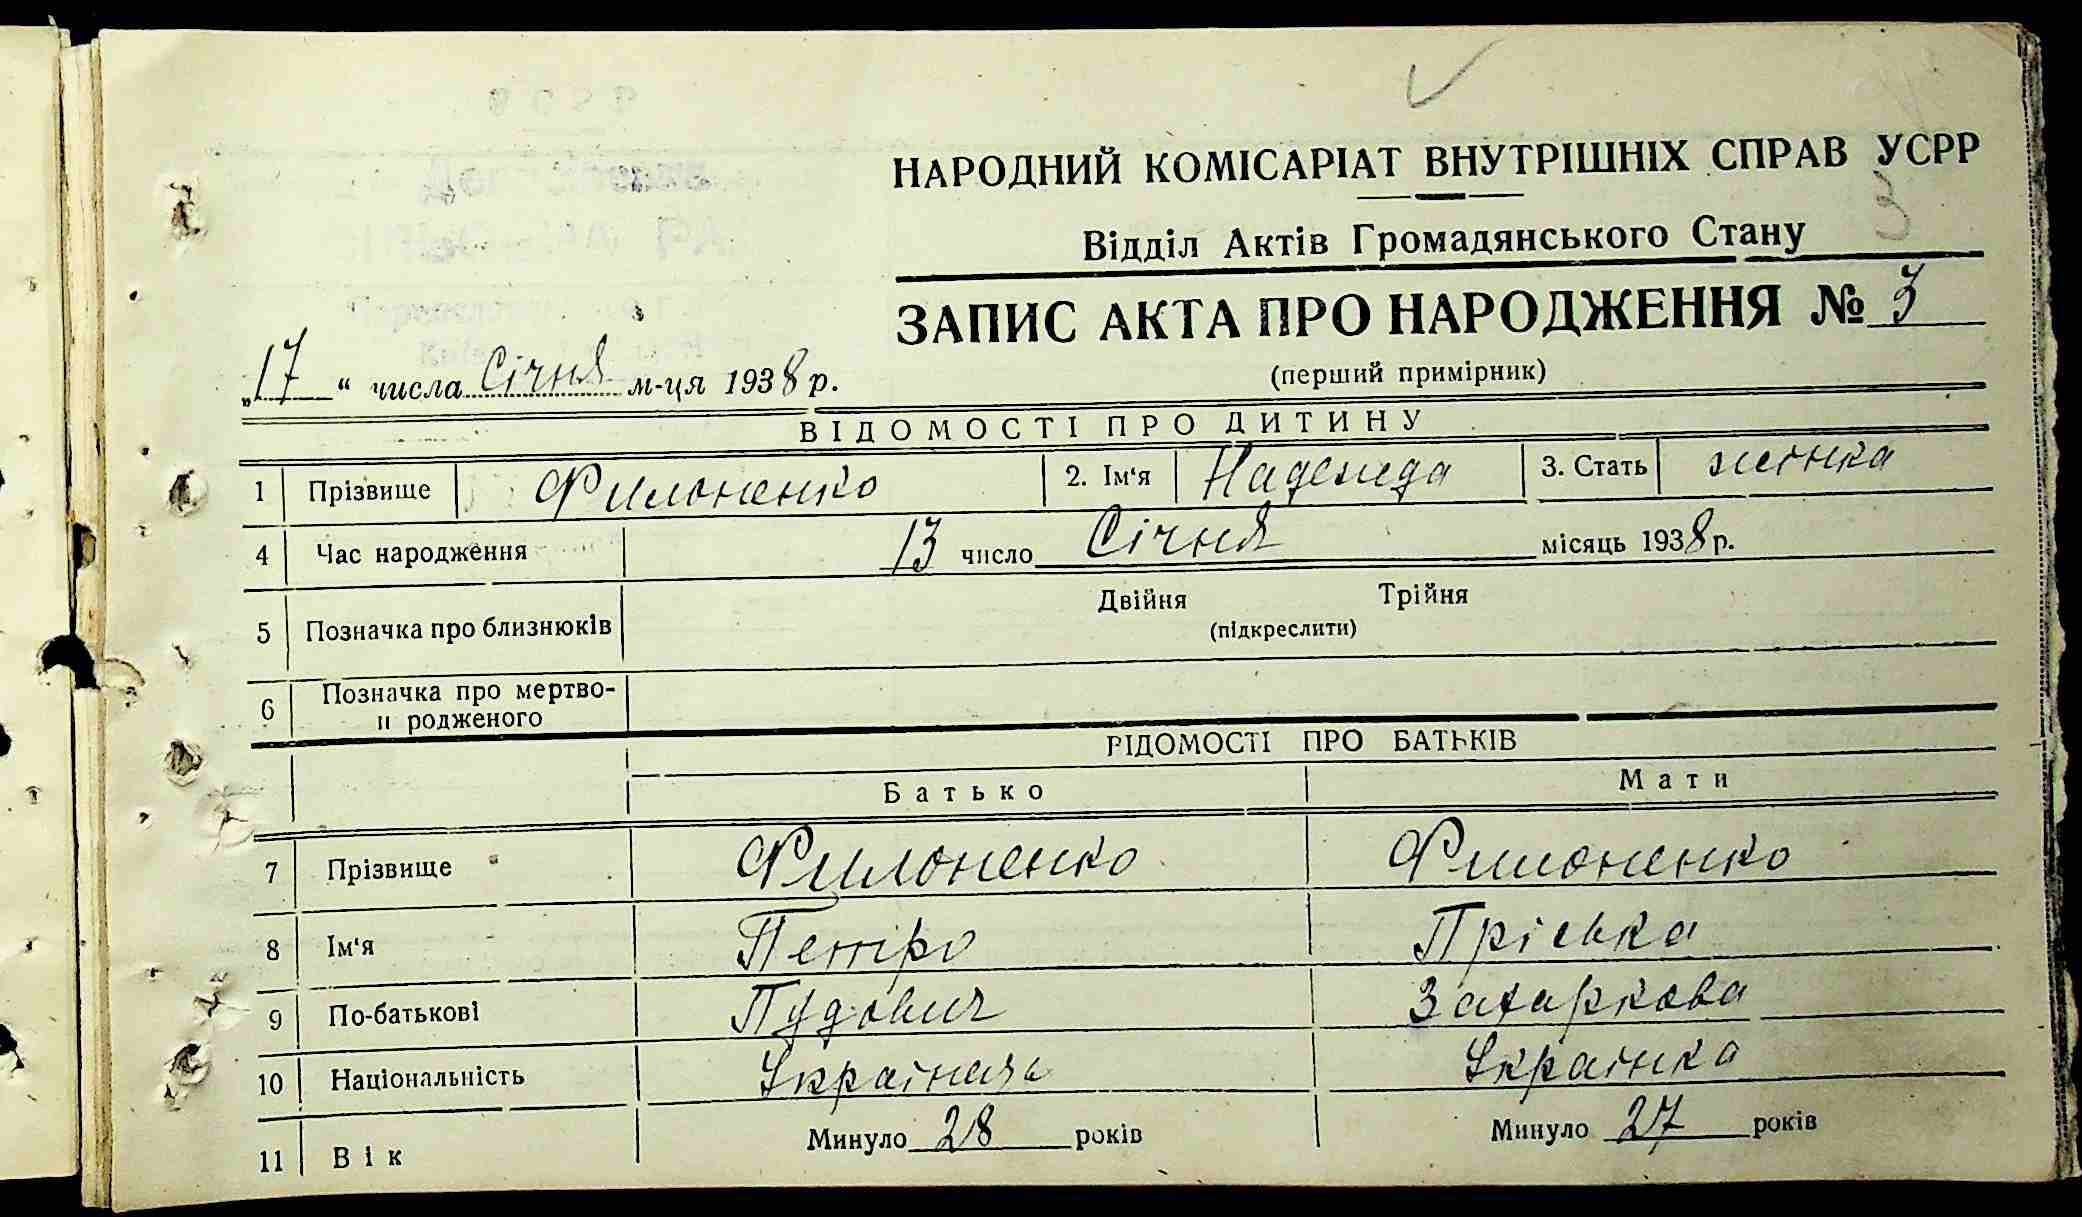 НАРОДНИЙ КОМІСАРІАТ ВНУТРІШНІХ СПРАВ УСРР
3
Відділ Актів Громадянського Стану
ЗАПИС АКТА ПРО НАРОДЖЕННЯ № 3
(перший примірник)
„17“ числа Січня м-ця 1938 р.
ВІДОМОСТІ ПРО ДИТИНУ
1 Прізвище Филоненко 2. Ім'я Надежда 3. Стать жінка
4 Час народження 13 число Січня місяць 1938 р.
Двійня Трійня
5 Позначка про близнюків (підкреслити)
6 Позначка про мертво-
н родженого
ВІДОМОСТІ ПРО БАТЬКІВ
Батько Мати
7 Прізвище Филоненко Филоненко
8 Ім'я Петро Пріська
9 По-батькові Пудович Захаркова
10 Національність Українець Українка
11 Вік Минуло 28 років Минуло 27 років